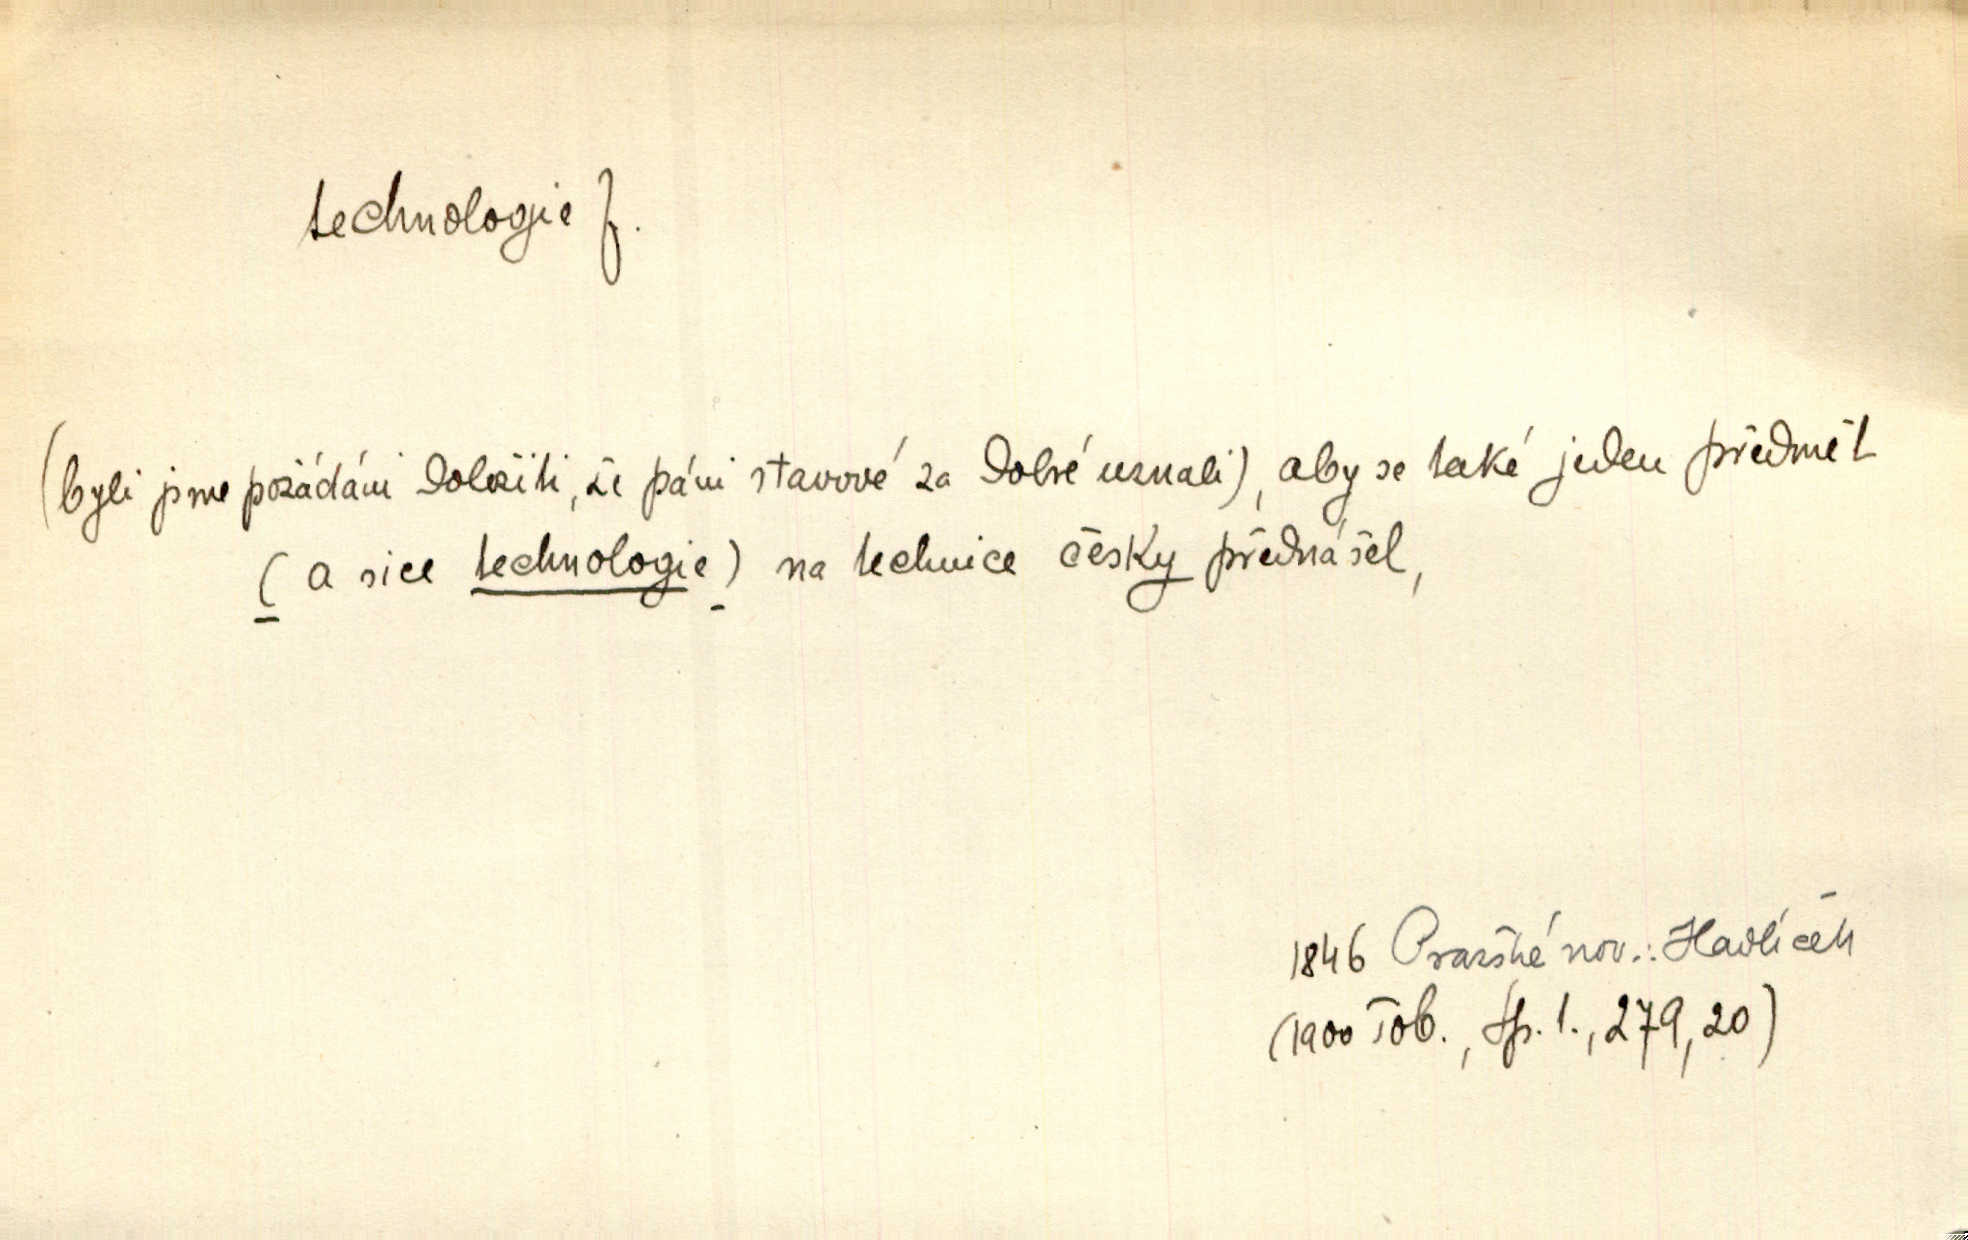 technologie f.
(byli jsme požádáni doložiti, že páni stavové za dobré uznali), aby se také jeden předmět
(a sice technologie) na technice česky přednášel,
1846 Pražské nov.: Havlíček
(1900 Tob., Sp. 1., 279, 20)